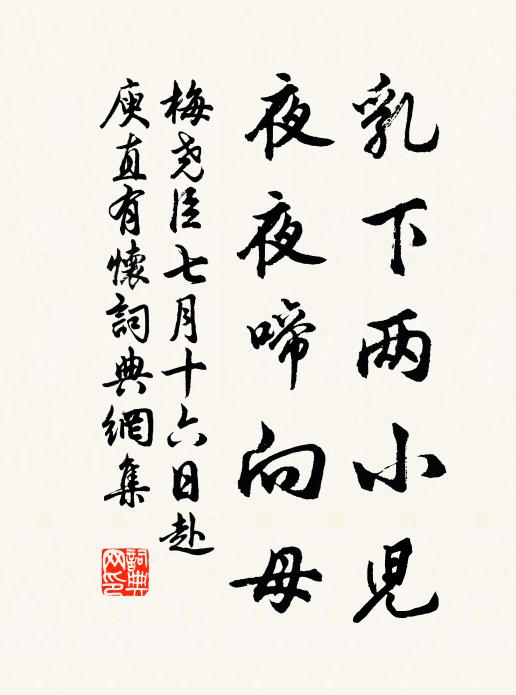 乳下两小児
夜夜啼向母
梅尧臣七月十六日赴
庾直有懷詞典網集
詞典
网印